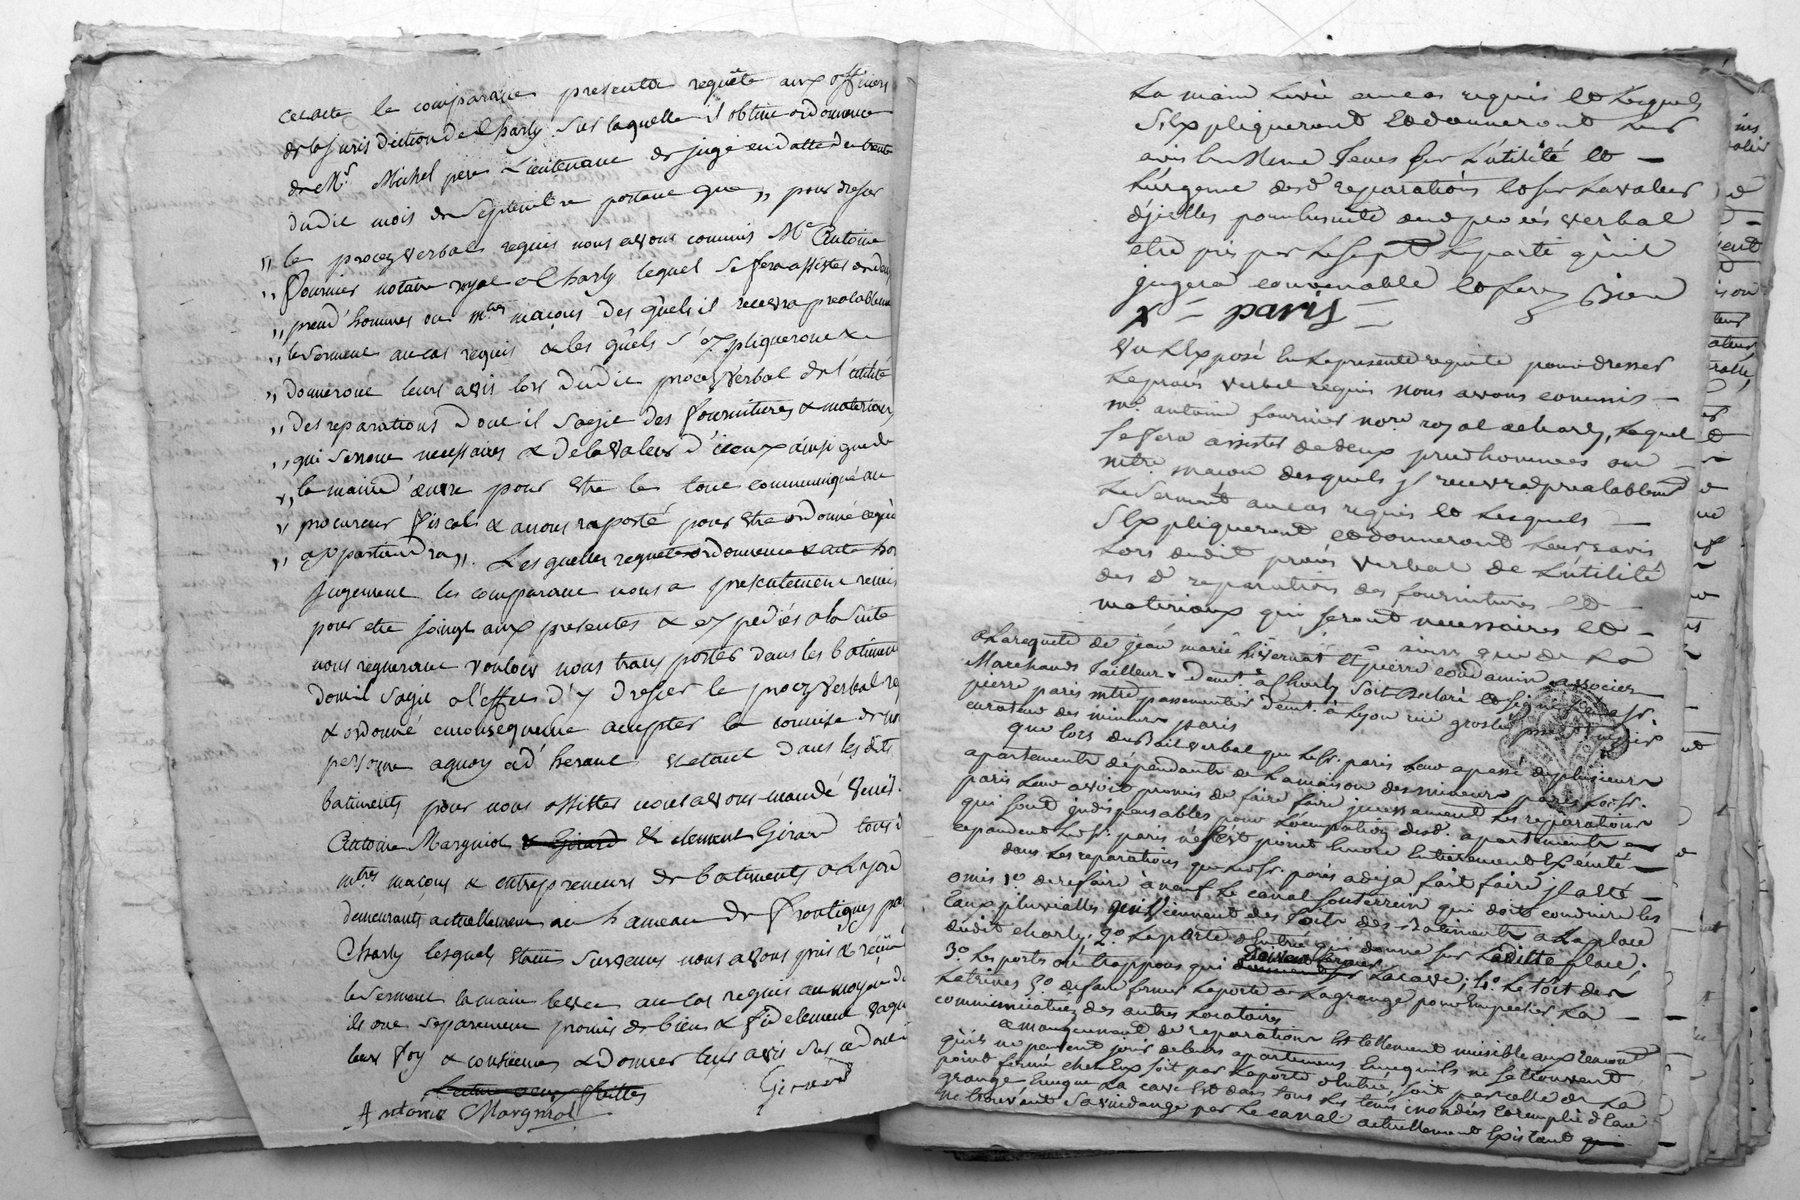 cet acte le comparant presenta requête aux officiers
de la Jurisdiction de Charly sur laquelle il obtint ordonnance
de Mr. Michel pere Lieutenant de juge en datte du trente
dudit mois de septembre portant que " pour dresser
" le procez verbal requis nous avons commis Me. Antoine
" fournier notaire royal a Charly lequel se fera assister de deux
" prud'hommes ou mtres. maçons desquels il recevra prealablement
" le serment au cas requis & lesquels s'expliqueront &
" donneront leurs avis lors dudit procez verbal de l'utilité
" des reparations dont il sagit des fournitures & materiaux
" qui seront necessaires & de la valeur d'iceux ainsi que de
" la maind'œuvre pour être le tout communiqué au
" procureur fiscal & a nous raporté pour être ordonné ce qu'il
" appartiendra ". Lesquelles requete ordonnance & acte hors
jugement les comparant nous a presentement remis
pour etre joingt aux presentes & expediés a la suite
nous requerant vouloir nous transporter dans les batiments
dont il sagit a l'effet d'y dresser le procez verbal
& ordonné en consequence accepter la commise de notre
personne aquoy adhérant etant dans les dits
batiments pour nous assister nous avons mandé venir
Antoine Margniol & Girard & clement Girard tous
mtres macons & entrepreneurs de batiments a Lyon
demeurants actuellement au hameau de frontigny
Charly lesquels etant survenus nous avons pris & reçu
le serment la main levée au cas requis au moyen de
ils ont separement promis de bien & fidelement vaquer
leur foy & conscience & donner leurs avis sur ce dont
Lecture aux
Antoine Margniol Girard
La main Levée au cas requis et Lesquels
S'Expliqueront et donneront leur
avis en Meme Tems sur L'utilité et
L'urgence desd. reparations et sur La valeur
d'jcelles pour ensuitte dud procés verbal
etre pris par Le Supt. Le parti qu'il
jugera convenable et ferez Bien
X - Girard -
Vu L'Exposé En La presente requete pour dresser
Le procés verbal requis nous avons commis
me. antoine fournier nore royal a charly, Lequel
se fera assister de deux prudhommes ou
mtre. macon desquels jl recevra prealablement
Le Serment au cas requis et Lesquels
S'Expliqueront et donneront Leurs avis
Lors dudit procés verbal de L'utilité
des d. reparations des fournitures et
materiaux qui seront necessaires et
ainsi que de La
a La requete de jean marie hivernat et pierre condamin associez
Marchands Tailleur demts. a Charly soit declaré et signifié a sr.
pierre paris mtre passementier demt. à Lyon rue grolée
curateur des mineurs paris
que Lors du Bail verbal que Le sr. paris Leur a passé de plusieurs
apartements dépendants de La maison des mineurs paris Ledit sr.
paris Leur avoit promis de faire faire jncessamment Les reparations
qui sont jndispensables pour L'occupation desd. apartements et
cependant Le sr. paris n'est point Encore Entierement Exécuté
dans Les reparations que Led. sr. paris a deja fait faire jl a été
omis 1o. de refaire à neuf Le canal souterrein qui doit conduire les
Eaux pluvialles qui viennent des Toits des Batiments a La place
dudit charly, 2o. La porte d'Entrée qui donne sur Laditte place,
3o. Les portes ou trappons qui doivent fermer La cave, 4o. Le toit des
Latrines 5o. de faire fermer La porte de La grange pour Empecher La
communication des autres Locataires
ce manquement de reparations est tellement nuisible aux remont.
qu'ils ne peuvent jouir de leurs apartements Puisqu'ils ne se trouvent
point fermé chez Eux soit par La porte d'Entrée, soit par celle de La
grange, Puisque La cave Est dans tous Les tems inondée Et remplie d'Eau
ne trouvant sa vuidange par Le canal actuellement Existant qui